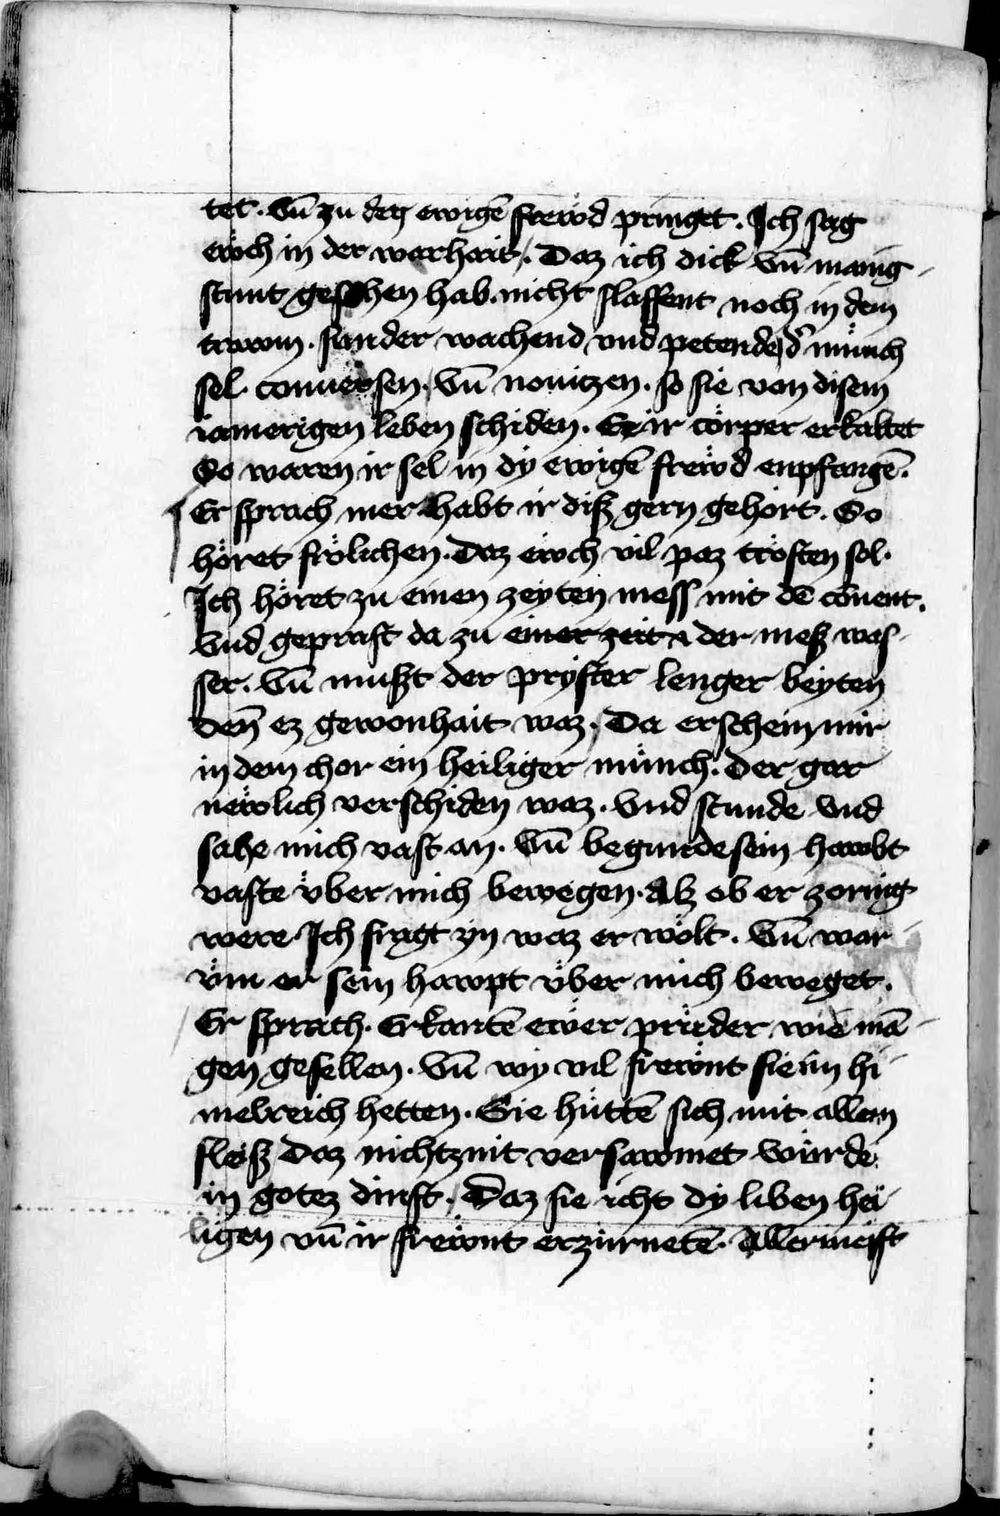 tet. Vn̄ zu den ewigē frewd pringet. Ich sag
ewch in der warhait. Daz ich dick vn̄ manig-
stunt gesehen hab. nicht slaffent noch in dem
trawm. sunder wachend vnd petende d' münch
sel. conuersen. Vn̄ nouitzen. so sie von disem
iamerigen leben schiden. Er ir cörper erkaltet
So waren ir sel in dy ewigē frewd enpfangē.
Er sprach mer habt ir diß gern gehört. So
höret frölichen. Daz ewch vil paz trösten sol.
Ich höret zu einen zeyten mess mit dē cōuent.
Vnd geprast da zu einer zeit der meß was-
ser. Vn̄ mußt der pryster lenger beyten
Den̄ ez gewonhait waz. Da erschein mir
in dem chor ein heiliger münch. Der gar
newlich verschiden waz. Vnd stunde vnd
sahe mich vast an. Vn̄ begunde sein hawbt
vaste über mich bewegen. Alz ob er zornig
were Ich fragt yn waz er wölt. Vn̄ war-
üm er sein hawpt über mich beweget.
Er sprach. Erkantē ewer prüder wie mā-
gen gesellen. Vn̄ wy vil frewnt sie im hi-
melreich hetten. Sie hüttē sich mit allem
fleiß Daz nichtznit versawmet würde
in gotez dinst. Daz sie icht dy liben hei-
ligen vn̄ ir frewnt erzürnetē. Allermeist